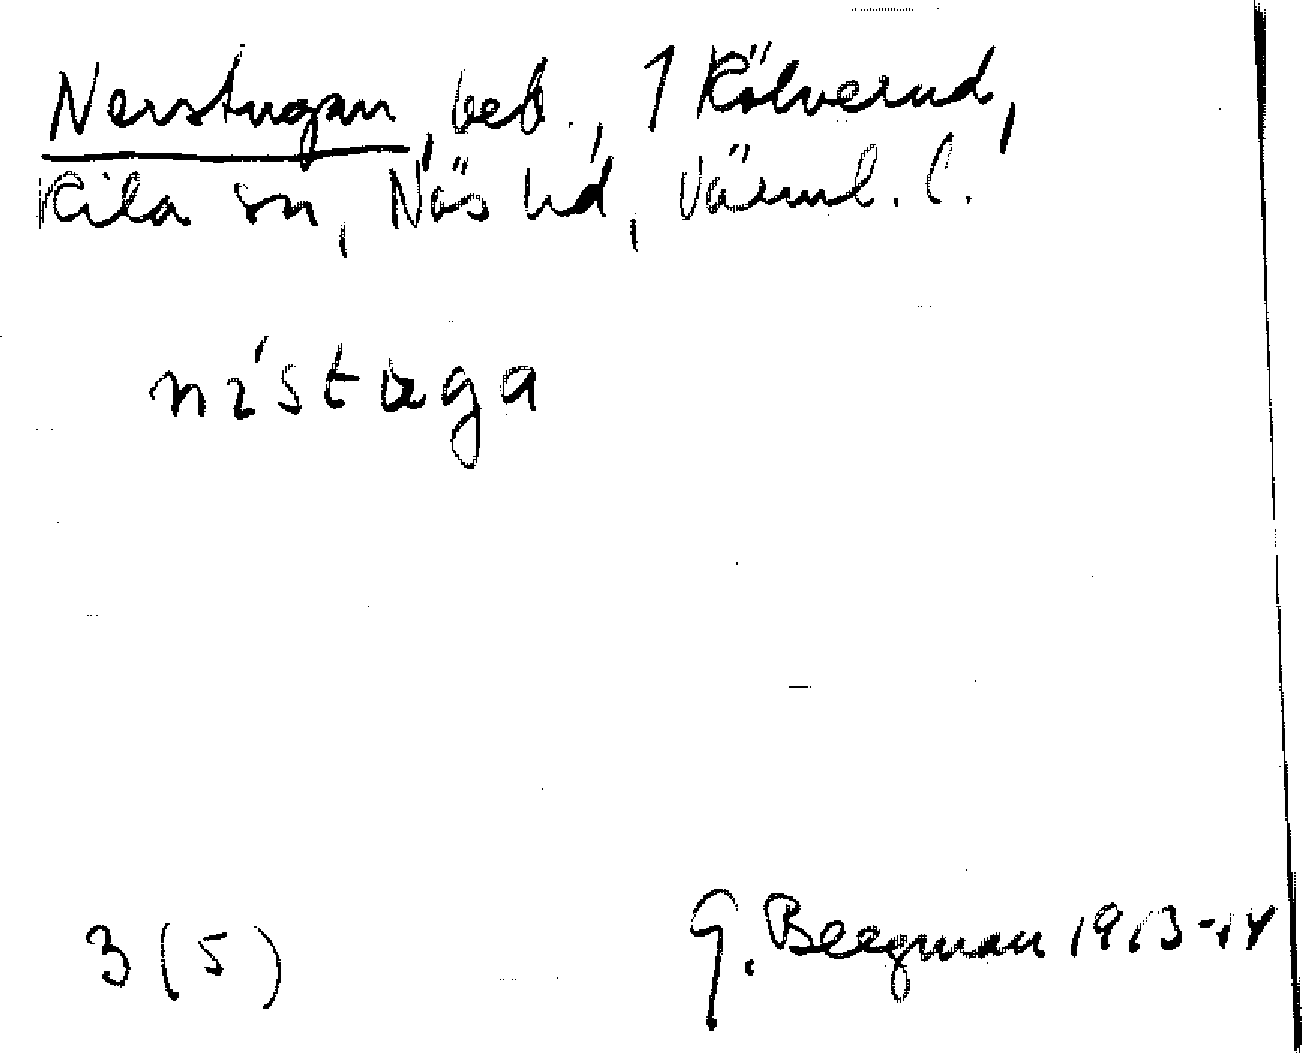 Nerstugan, beb., 1 Rölverud,
Kila sn, Näs hd, Värml. l.
nístaga
3 (5) G. Bergman 1913-14